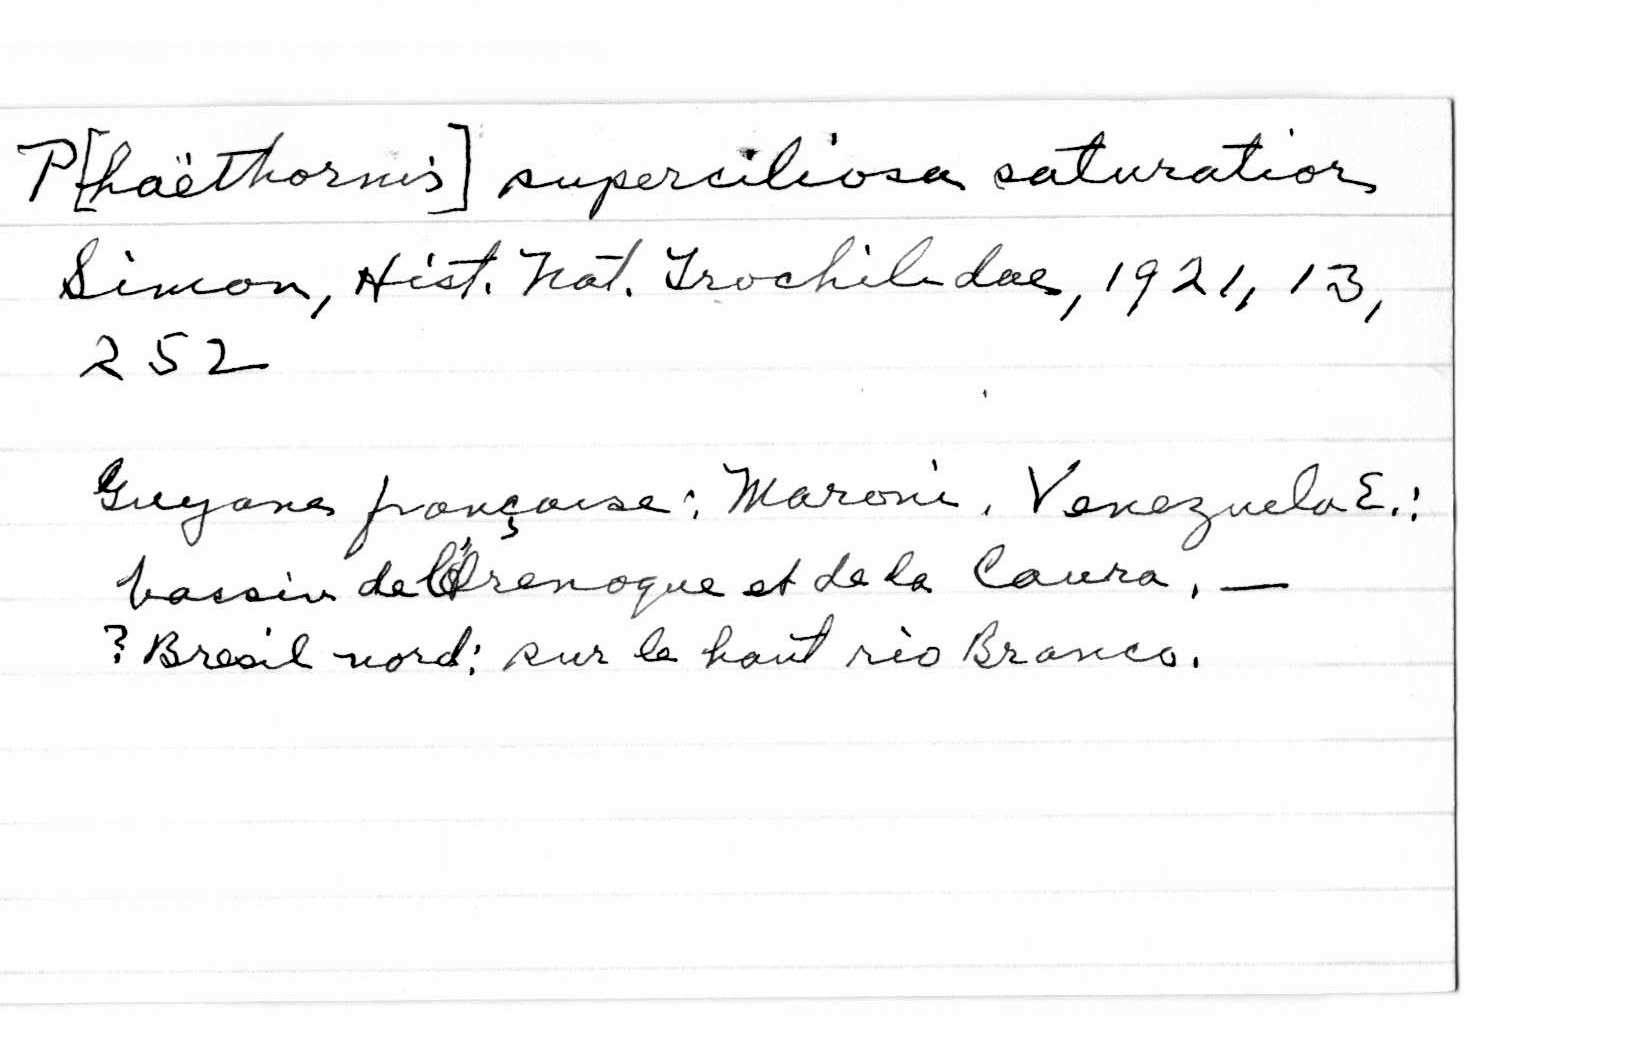 P[haëthornis] superciliosa saturatior
Simon, Hist. Nat. Trochilidae, 1921, 13,
252
Guyane française: Maroni. Venezuela E.:
bassin de l'Orenoque et de la Caura. —
? Bresil nord: sur le haut rio Branco.